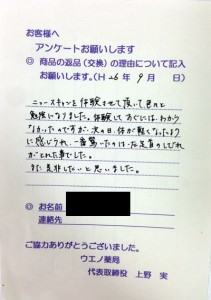 お客様へ
アンケートお願いします
◎ 商品の返品(交換)の理由について記入
お願いします。(H 26 年 9 月 日)
ニュースキャンを体験させて頂いて色々と
勉強になりました。体験してすぐには、わから
なかったのですが、次の日、体が軽くなったよう
に感じられ、一番驚いたのは、左足首のしびれ
がとれた事でした。
また是非したいと思いました。
◎ お名前
連絡先
ご協力ありがとうございました。
ウエノ薬局
代表取締役 上野 実